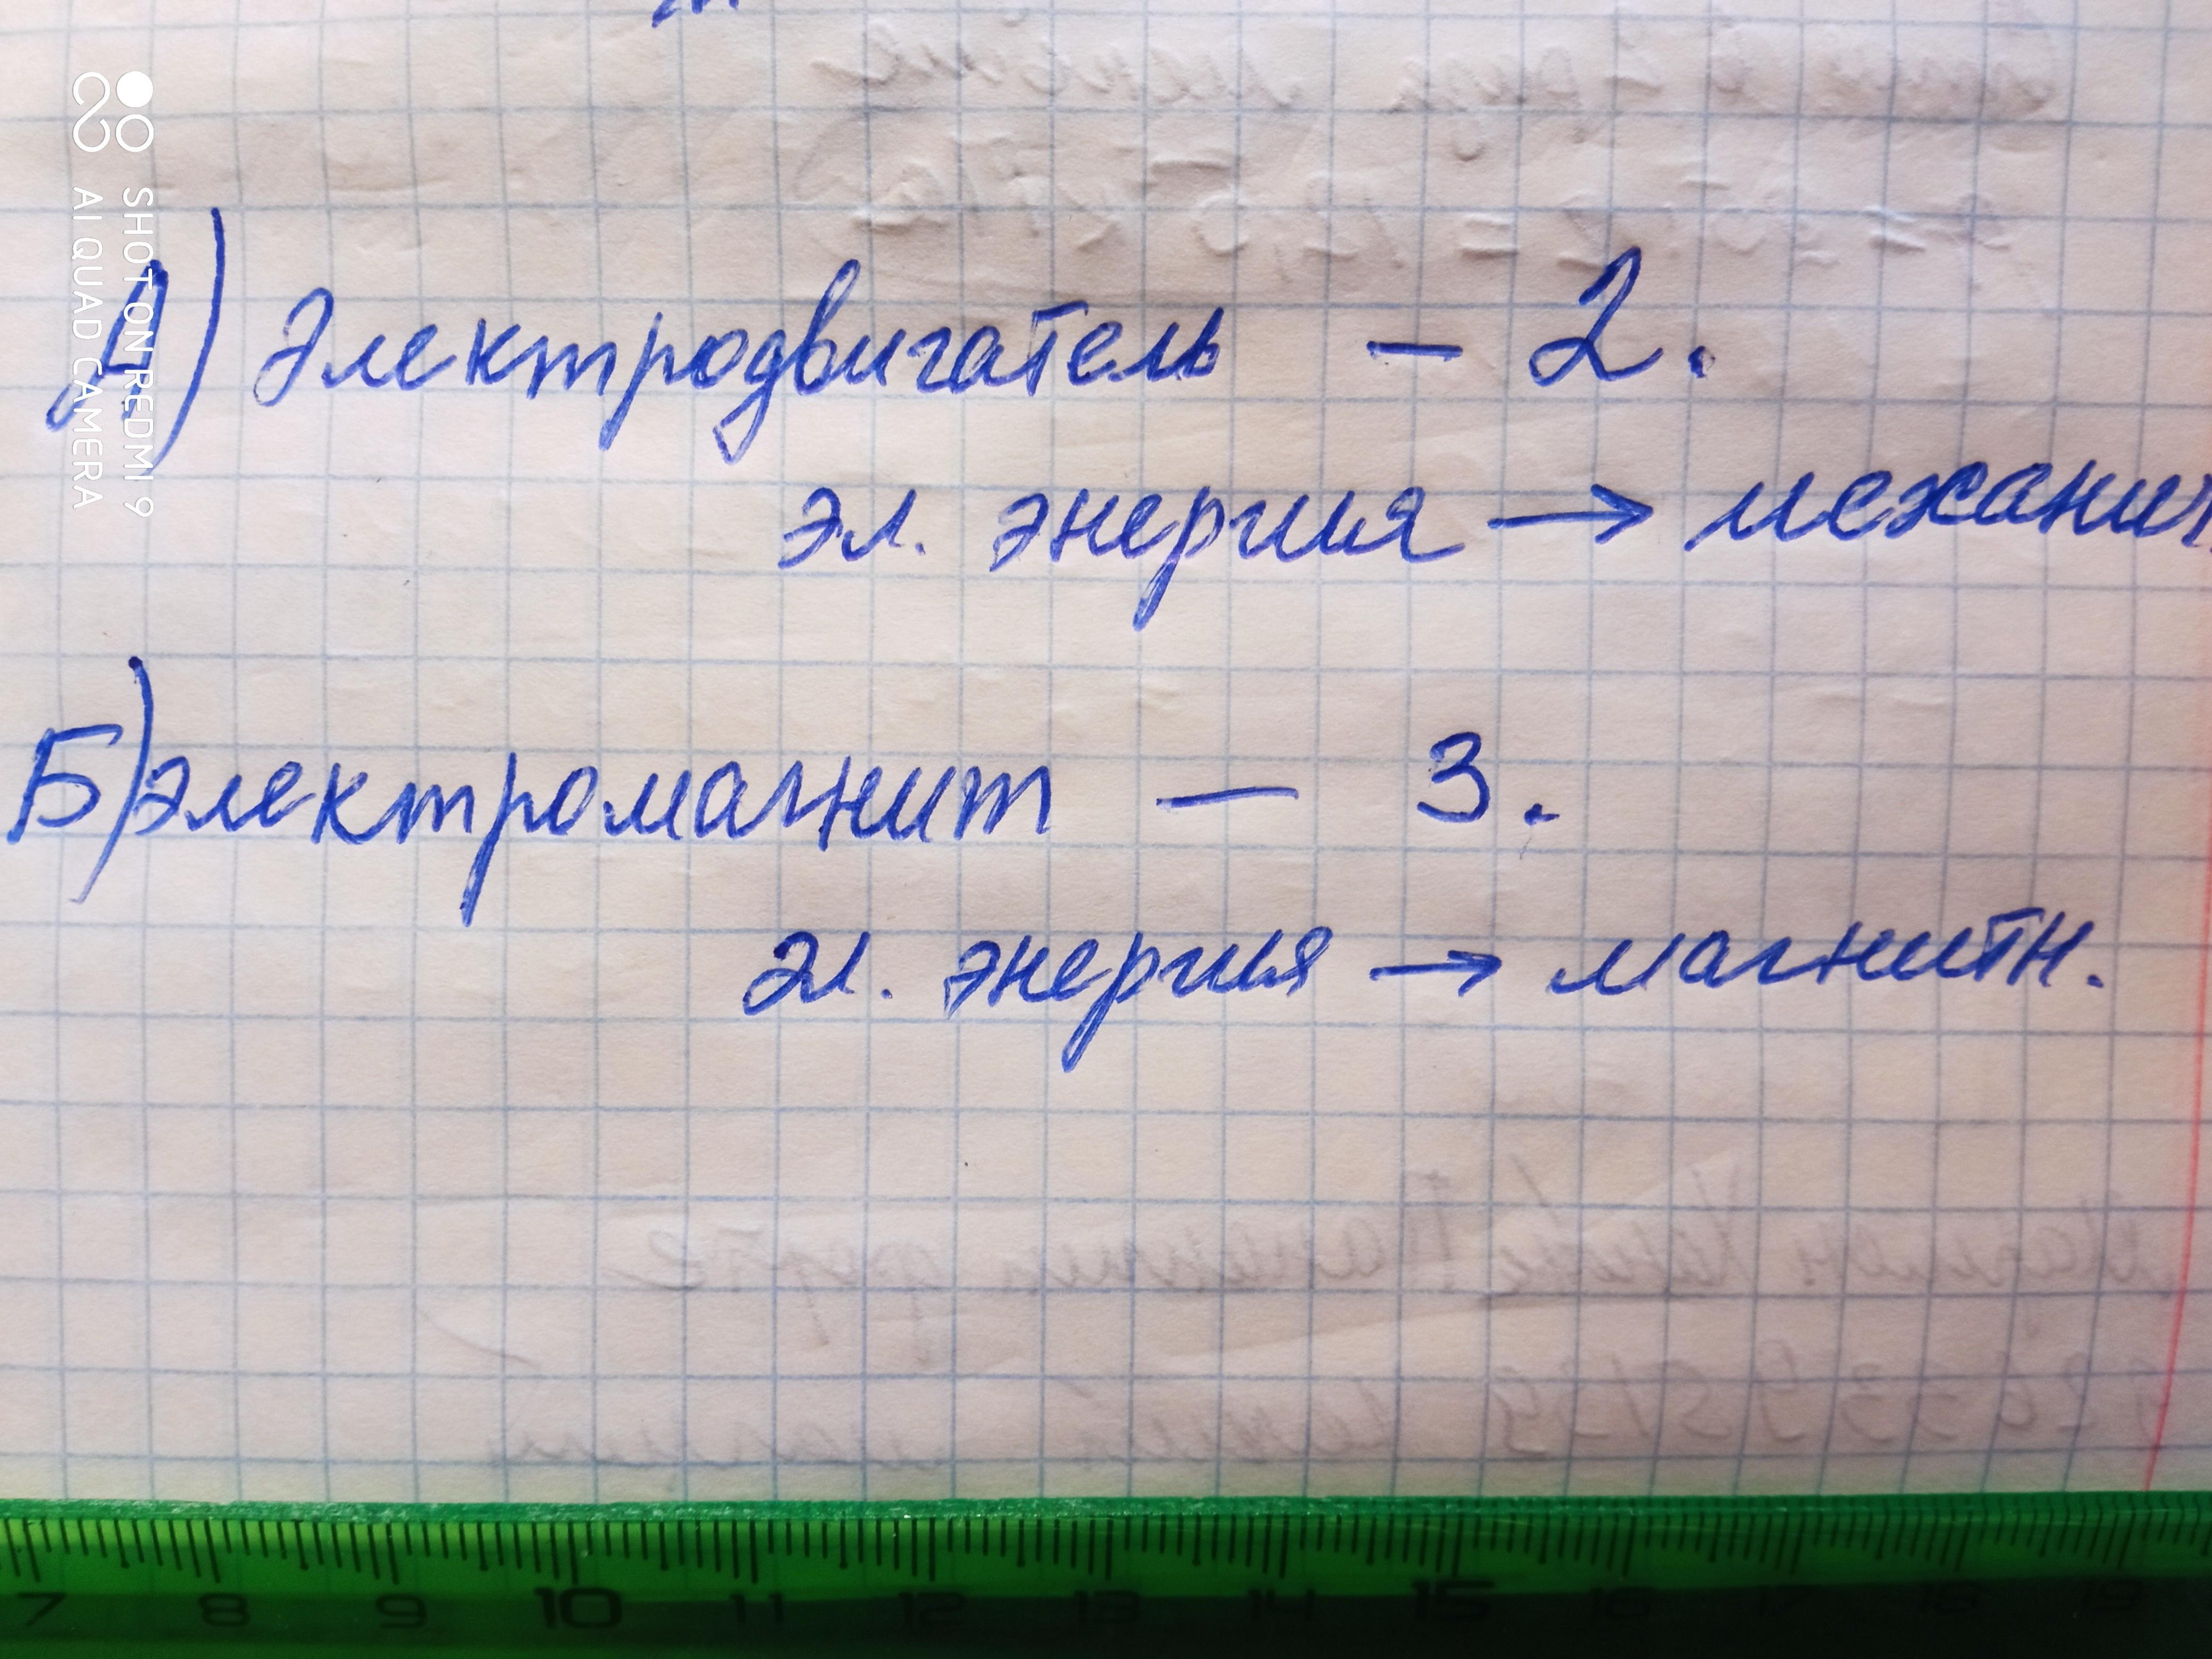 А) Электродвигатель – 2.
эл. энергия → механич
Б) электромагнит – 3.
эл. энергия → магнитн.
7 8 9 10 11 12 13 14 15 16 17 18 19
SHOT ON REDMI 9
AI QUAD CAMERA